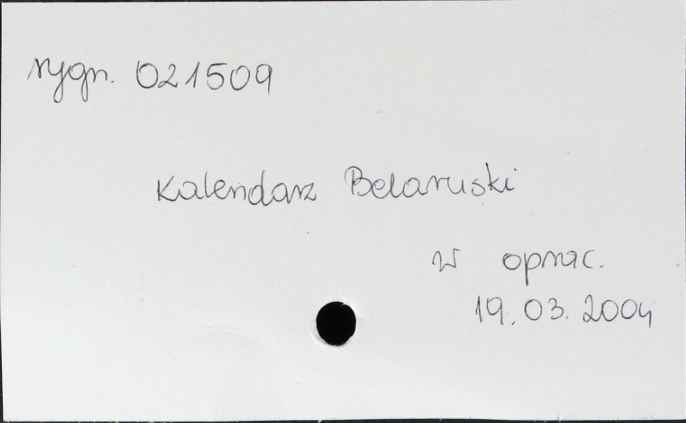 sygn. 021509
Kalendarz Belaruski
w oprac.
19.03.2004